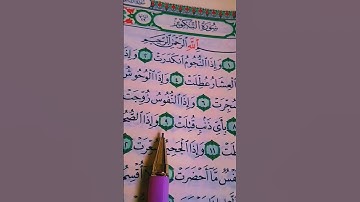 سُورَةُ التَّكْوِيرِ
بِسْمِ اللَّهِ الرَّحْمَٰنِ الرَّحِيمِ
١ وَإِذَا النُّجُومُ انكَدَرَتْ ٢ وَإِذَا
الْعِشَارُ عُطِّلَتْ ٤ وَإِذَا الْوُحُوشُ
سُجِّرَتْ ٦ وَإِذَا النُّفُوسُ زُوِّجَتْ
٨ بِأَيِّ ذَنبٍ قُتِلَتْ ٩ وَإِذَا
١١ وَإِذَا الْجَحِيمُ سُعِّرَتْ
نَفْسٌ مَّا أَحْضَرَتْ